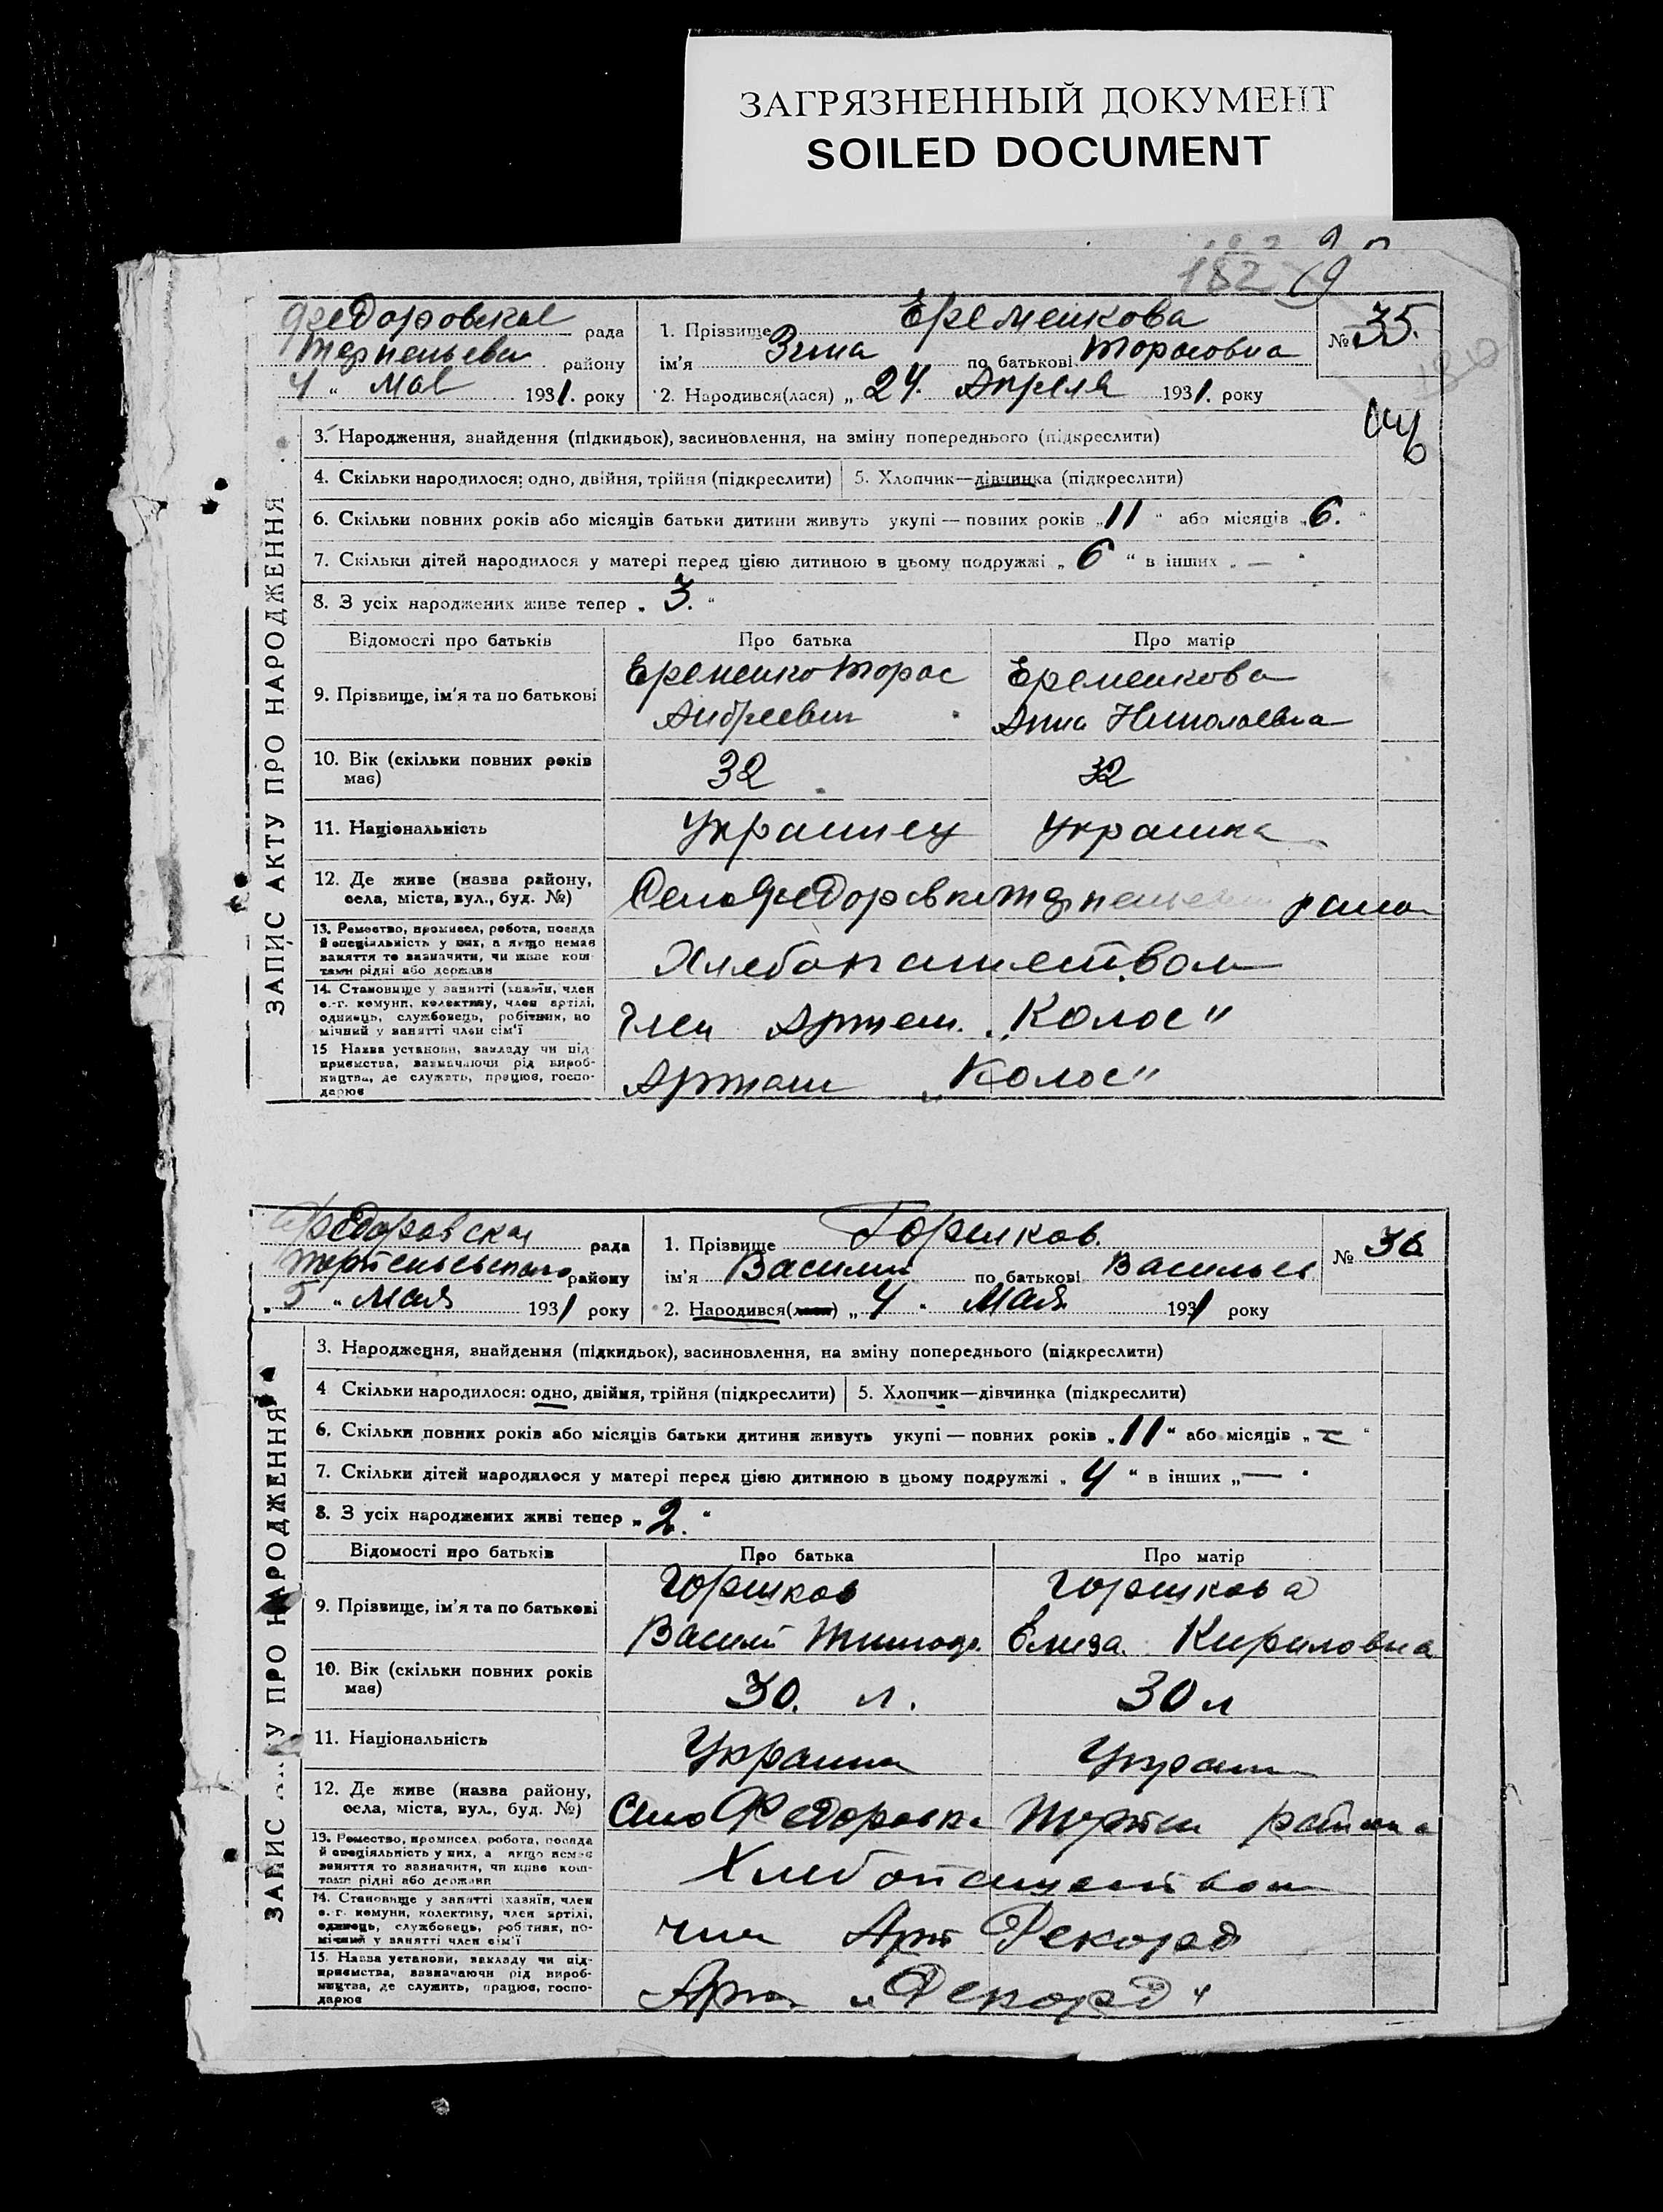 ЗАГРЯЗНЕННЫЙ ДОКУМЕНТ
SOILED DOCUMENT
182
ЗАПИС АКТУ ПРО НАРОДЖЕННЯ
Федоровска рада
району
4 “ Мая 1931. року
1. Прізвище Еременкова
ім'я Зина по батькові Торасовна
2. Народився(лася) „ 24. Апреля 1931. року
№ 35.
3. Народження, знайдення (підкидьок), засиновлення, на зміну попереднього (підкреслити)
4. Скільки народилося: одно, двійня, трійня (підкреслити) 5. Хлопчик—дівчинка (підкреслити)
6. Скільки повних років або місяців батьки дитини живуть укупі — повних років „ 11 “ або місяців „ 6. “
7. Скільки дітей народилося у матері перед цією дитиною в цьому подружжі „ 6 “ в інших „ —
8. З усіх народжених живе тепер „ 3. “
Відомості про батьків Про батька Про матір
9. Прізвище, ім'я та по батькові
Еременко Торас Еременкова
Андреевич Анна Николаевна
10. Вік (скільки повних років має) 32 32
11. Національність Украинец Украинка
12. Де живе (назва району, села, міста, вул., буд. №) Село Федоровка район
13. Ремество, промисел, робота, посада
й спеціяльність у них, а якщо немає
заняття то вазначити, чи живе кош-
тами рідні або держави
Хлебопашеством
14. Становище у занятті (хазяїн, член
с.-г. комуни, колективу, член артілі,
одинець, службовець, робітник, по
мічний у занятті член сім'ї
Член Артели „Колос“
15 Назва установи, закладу чи під-
приємства, вазначаючи рід вироб-
ництва, де служить, працює, госпо-
дарює
Артели „Колос“
ЗАПИС АКТУ ПРО НАРОДЖЕННЯ
Федоровская рада
району
„ 5 “ Мая 1931 року
1. Прізвище Горшков.
ім'я Василий по батькові Васильев
2. Народився(лася) „ 4 “ Мая 1931 року
№ 36
3. Народження, знайдення (підкидьок), засиновлення, на зміну попереднього (підкреслити)
4 Скільки народилося: одно, двійня, трійня (підкреслити) 5. Хлопчик—дівчинка (підкреслити)
6. Скільки повних років або місяців батьки дитини живуть укупі — повних років „ 11 “ або місяців „ — “
7. Скільки дітей народилося у матері перед цією дитиною в цьому подружжі „ 4 “ в інших „ —
8. З усіх народжених живі тепер „ 2. “
Відомості про батьків Про батька Про матір
9. Прізвище, ім'я та по батькові
Горшков Горшкова
Василий Тимоф. Елиза. Кириловна
10. Вік (скільки повних років має) 30. л. 30 л
11. Національність Украин Украин
12. Де живе (назва району, села, міста, вул., буд. №) Село Федоровка района
13. Ремество, промисел, робота, посада
й спеціяльність у них, а якщо немає
заняття то вазначити, чи живе кош-
тами рідні або держави
Хлебопашеством
14. Становище у занятті (хазяїн, член
с.-г. комуни, колективу, член артілі,
одинець, службовець, робітник, по-
мічний у занятті член сім'ї
член Арт Рекорд
15. Назва установи, закладу чи під-
приємства, вазначаючи рід вироб-
ництва, де служить, працює, госпо-
дарює
Арт. „Рекорд“